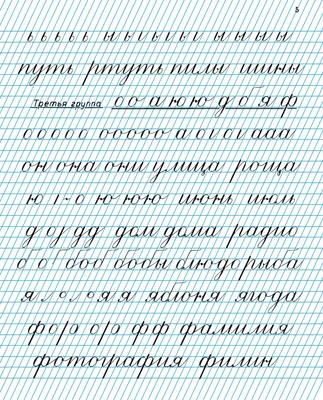 5
ь ь ь ь ь ы ы ы ы ы ы ы ы ы
путь ртуть пилы шины
Третья группа о о а ю ю д б я ф
о о о о о о о о о о а о а о а а а
он она они улица роща
ю ю ю ю июнь июль
д о д д дом дома радио
б о б о б б о б ы блюдо рыса
я о я я яблоня ягода
ф о р о р ф ф фамилия
фотография филин